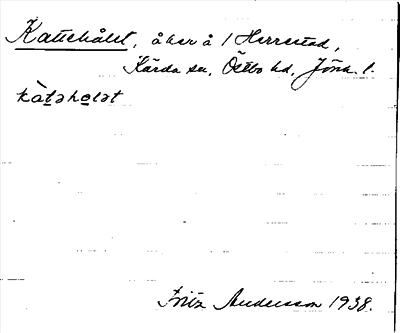 Kattehålet, åker å 1 Herrestad,
Kärda sn, Östbo hd, Jönk. l.
kàtəhoḷət
Fritz Andersson 1938.